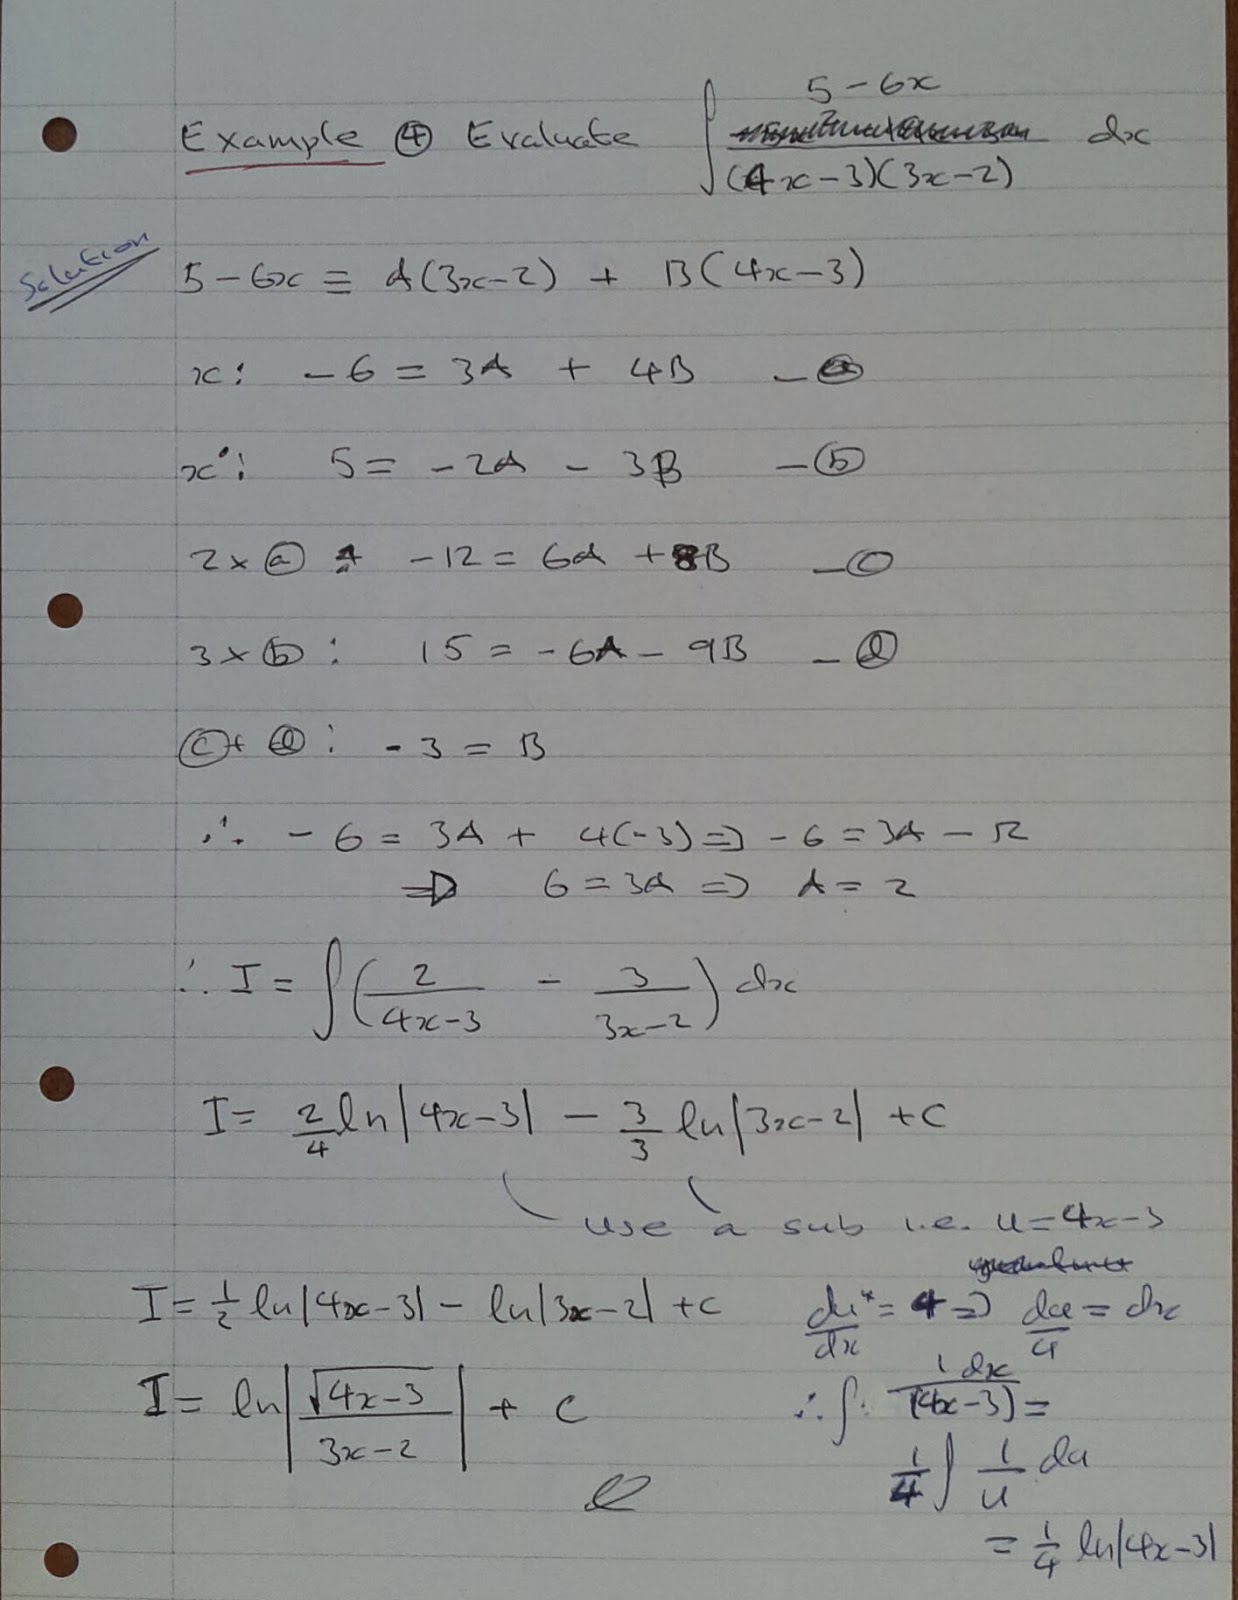 Example ④ Evaluate ∫ 5-6x / (4x-3)(3x-2) dx
Solution
5-6x ≡ A(3x-2) + B(4x-3)
x: -6 = 3A + 4B - ⓐ
x°: 5 = -2A - 3B - ⓑ
2 x ⓐ : -12 = 6A + 8B - ⓒ
3 x ⓑ : 15 = -6A - 9B - ⓓ
ⓒ + ⓓ : -3 = B
∴ -6 = 3A + 4(-3) => -6 = 3A - 12
=> 6 = 3A => A = 2
∴ I = ∫ (2/(4x-3) - 3/(3x-2)) dx
I = 2/4 ln|4x-3| - 3/3 ln|3x-2| + C
use a sub i.e. u = 4x-3
I = 1/2 ln|4x-3| - ln|3x-2| + C
du/dx = 4 => du/4 = dx
I = ln|√(4x-3) / (3x-2)| + C
∴ ∫ 1 dx/(4x-3) =
1/4 ∫ 1/u du
= 1/4 ln|4x-3|